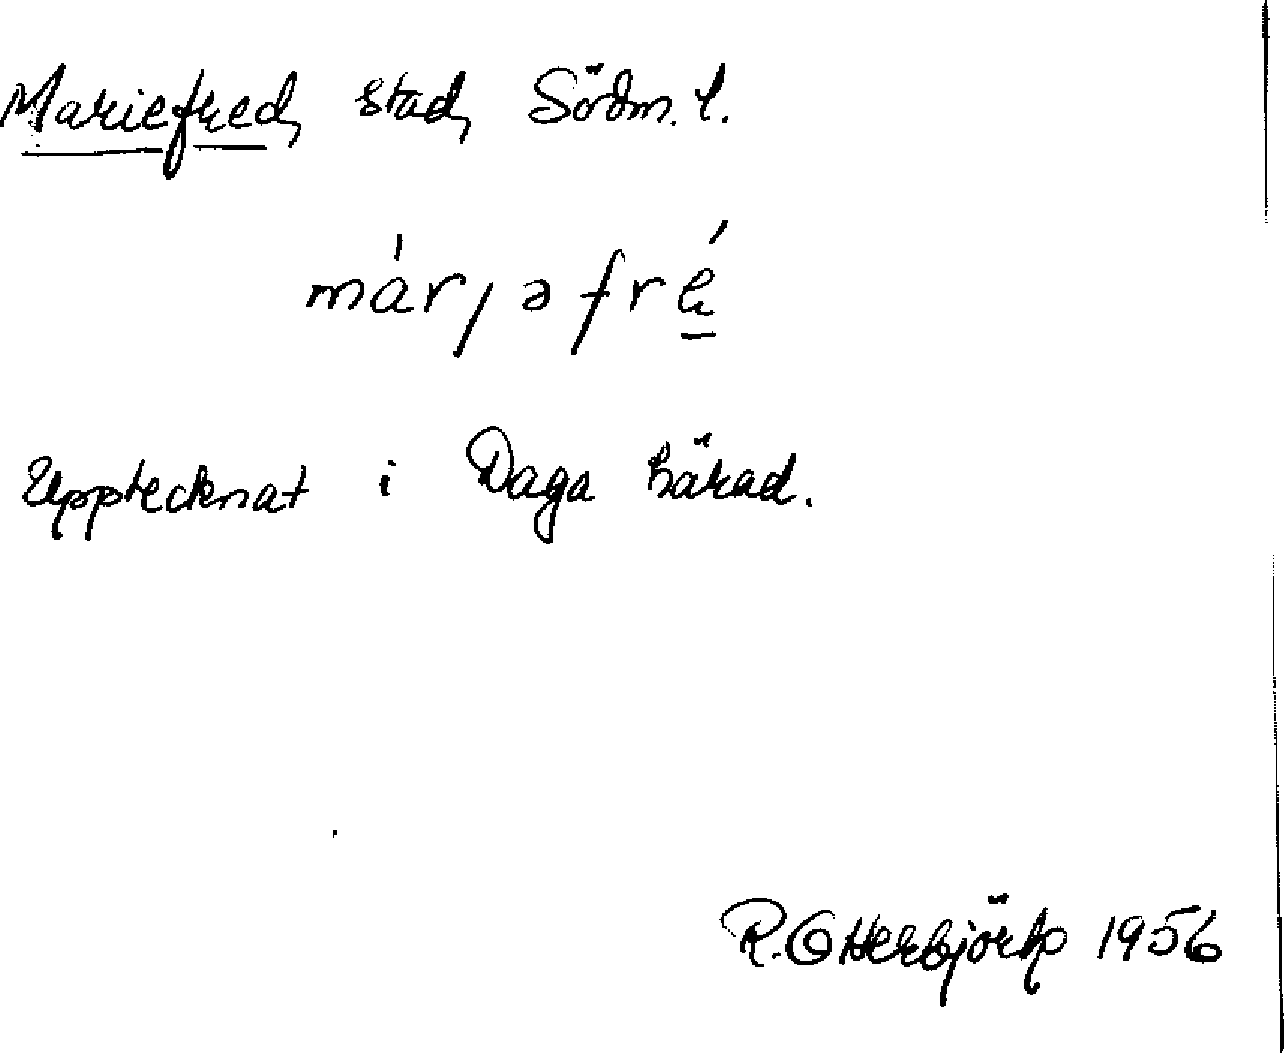 Mariefred, stad, Södm. l.
márȷəfré̱
Upptecknat i Daga härad.
R. Otterbjörk 1956